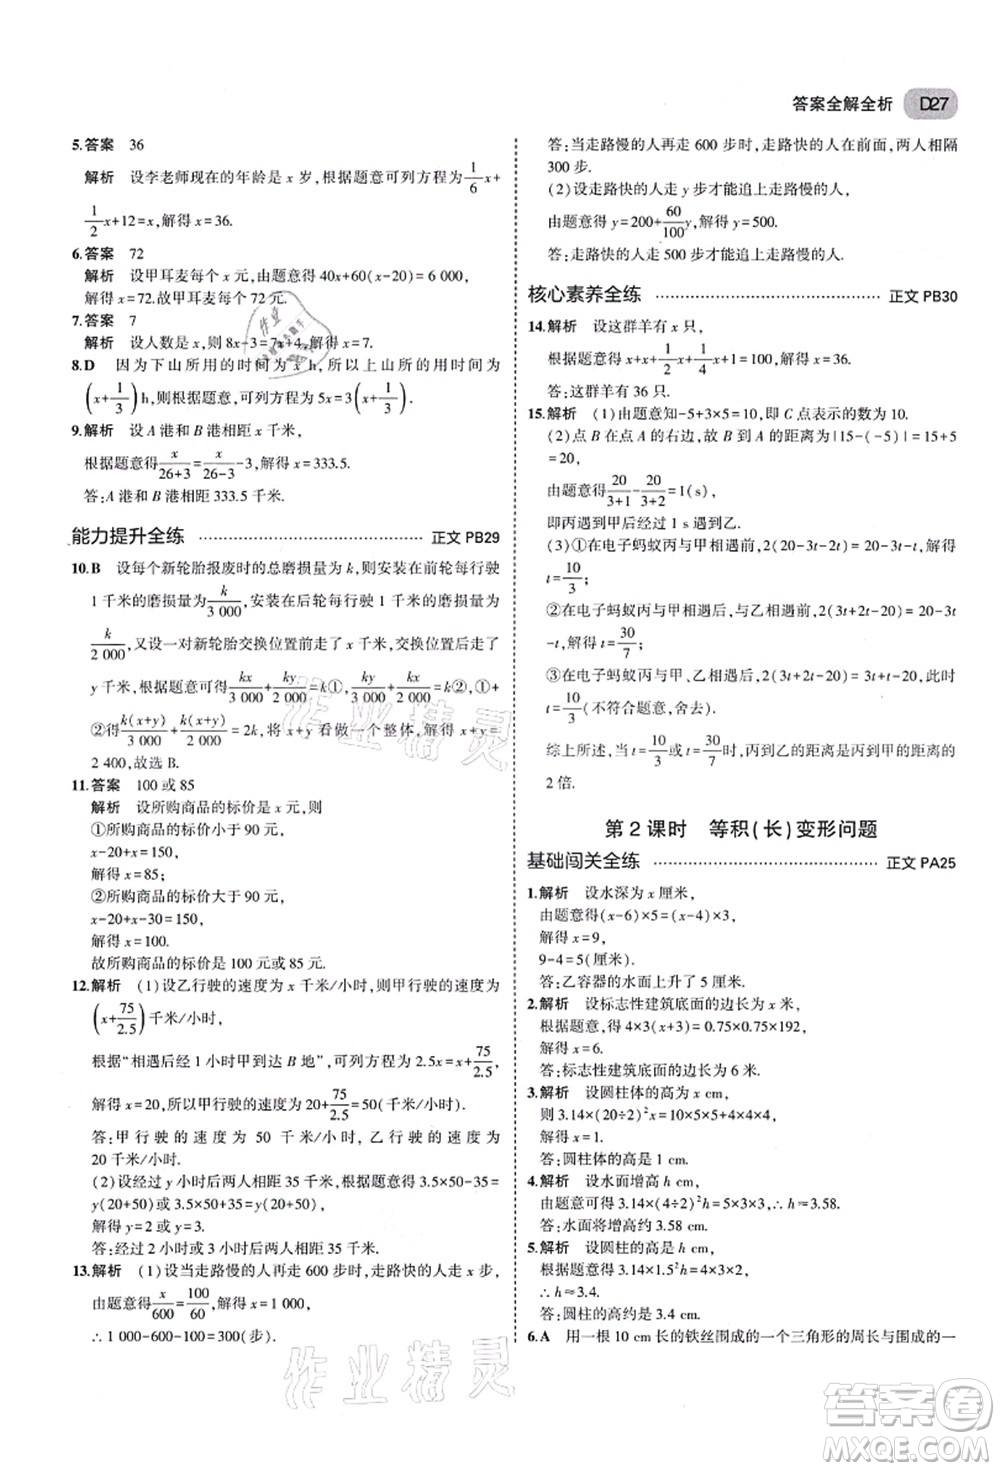 答案全解全析 D27
5.答案 36
解析 设李老师现在的年龄是 x 岁,根据题意可列方程为 1/6 x+
1/2 x+12=x,解得 x=36.
6.答案 72
解析 设甲耳麦每个 x 元,由题意得 40x+60(x-20)=6 000,
解得 x=72.故甲耳麦每个 72 元.
7.答案 7
解析 设人数是 x,则 8x-3=7x+4,解得 x=7.
8.D 因为下山所用的时间为 x h,所以上山所用时间为
(x+1/3)h,则根据题意,可列方程为 5x=3(x+1/3).
9.解析 设 A 港和 B 港相距 x 千米,
根据题意得 x/(26+3)=x/(26-3)-3,解得 x=333.5.
答:A 港和 B 港相距 333.5 千米.
能力提升全练 正文 PB29
10.B 设每个新轮胎报废时的总磨损量为 k,则安装在前轮每行驶
1 千米的磨损量为 k/3 000,安装在后轮每行驶 1 千米的磨损量为
k/2 000,又设一对新轮胎交换位置前走了 x 千米,交换位置后走了
y 千米,根据题意得 kx/3 000+ky/2 000=k①,kx/2 000+ky/3 000=k②,①+
②得 k(x+y)/3 000+k(x+y)/2 000=2k,将 x+y 看做一个整体,解得 x+y=
2 400,故选 B.
11.答案 100 或 85
解析 设所购商品的标价是 x 元,则
①所购商品的标价小于 90 元,
x-20+x=150,
解得 x=85;
②所购商品的标价大于 90 元,
x-20+x-30=150,
解得 x=100.
故所购商品的标价是 100 元或 85 元.
12.解析 (1)设乙行驶的速度为 x 千米/小时,则甲行驶的速度为
(x+75/2.5)千米/小时,
根据“相遇后经 1 小时甲到达 B 地”,可列方程为 2.5x=x+75/2.5,
解得 x=20,所以甲行驶的速度为 20+75/2.5=50(千米/小时).
答:甲行驶的速度为 50 千米/小时,乙行驶的速度为
20 千米/小时.
(2)设经过 y 小时两人相距 35 千米,根据题意得 3.5×50-35=
y(20+50)或 3.5×50+35=y(20+50),
解得 y=2 或 y=3.
答:经过 2 小时或 3 小时后两人相距 35 千米.
13.解析 (1)设当走路慢的人再走 600 步时,走路快的人走 x 步,
由题意得 x/600=100/60,解得 x=1 000,
∴1 000-600-100=300(步).
答:当走路慢的人再走 600 步时,走路快的人在前面,两人相隔
300 步.
(2)设走路快的人走 y 步才能追上走路慢的人,
由题意得 y=200+60/100 y,解得 y=500.
答:走路快的人走 500 步才能追上走路慢的人.
核心素养全练 正文 PB30
14.解析 设这群羊有 x 只,
根据题意得 x+x+1/2 x+1/4 x+1=100,解得 x=36.
答:这群羊有 36 只.
15.解析 (1)由题意知-5+3×5=10,即 C 点表示的数为 10.
(2)点 B 在点 A 的右边,故点 B 到 A 的距离为|15-(-5)|=15+5
=20,
由题意得 20/(3+1)-20/(3+2)=1(s),
即丙遇到甲后经过 1 s 遇到乙.
(3)①在电子蚂蚁丙与甲相遇前,2(20-3t-2t)=20-3t-t,解得
t=10/3;
②在电子蚂蚁丙与甲相遇后、与乙相遇前,2(3t+2t-20)=20-3t
-t,解得 t=30/7;
③在电子蚂蚁丙与甲、乙相遇后,2(3t+2t-20)=3t+t-20,此时
t=10/3(不符合题意,舍去).
综上所述,当 t=10/3 或 t=30/7 时,丙到乙的距离是丙到甲的距离的
2 倍.
第 2 课时 等积(长)变形问题
基础闯关全练 正文 PA25
1.解析 设水深为 x 厘米,
由题意得(x-6)×5=(x-4)×3,
解得 x=9,
9-4=5(厘米).
答:乙容器的水面上升了 5 厘米.
2.解析 设标志性建筑底面的边长为 x 米,
根据题意,得 4×3(x+3)=0.75×0.75×192,
解得 x=6.
答:标志性建筑底面的边长为 6 米.
3.解析 设圆柱体的高为 x cm,
则 3.14×(20÷2)²x=10×5×5+4×4×4,
解得 x=1.
答:圆柱体的高是 1 cm.
4.解析 设水面增高 h cm,
由题意可得 3.14×(4÷2)²h=5×3×3,∴h≈3.58.
答:水面将增高约 3.58 cm.
5.解析 设圆柱的高为 h cm,
由题意得 3.14×1.5²h=4×3×2,
∴h≈3.4.
答:圆柱的高约为 3.4 cm.
6.A 用一根 10 cm 长的铁丝围成的一个三角形的周长与围成的一
作业精灵
作业精灵
答案圈
MXQE.COM